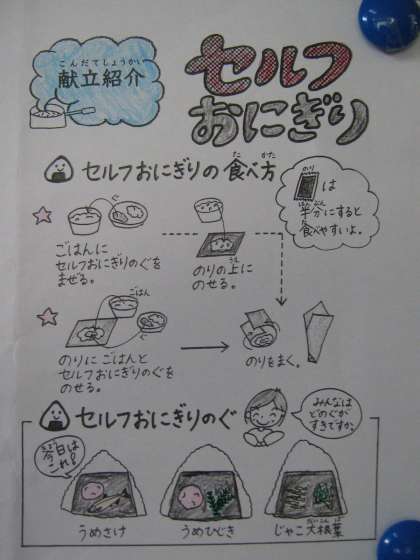 こんだてしょうかい
献立紹介
セルフ
おにぎり
セルフおにぎりの食べ方
た かた
のり
は
はんぶん
半分にすると
食べやすいよ。
ぐ
ごはんに
セルフおにぎりのぐを
まぜる。
うえ
のりの上に
のせる。
ごはん
のりにごはんと
セルフおにぎりのぐを
のせる。
のりをまく。
セルフおにぎりのぐ
みんなは
どのぐが
すきですか。
きょう
今日は
これ!
うめさけ
うめひじき
だいこんば
じゃこ大根葉